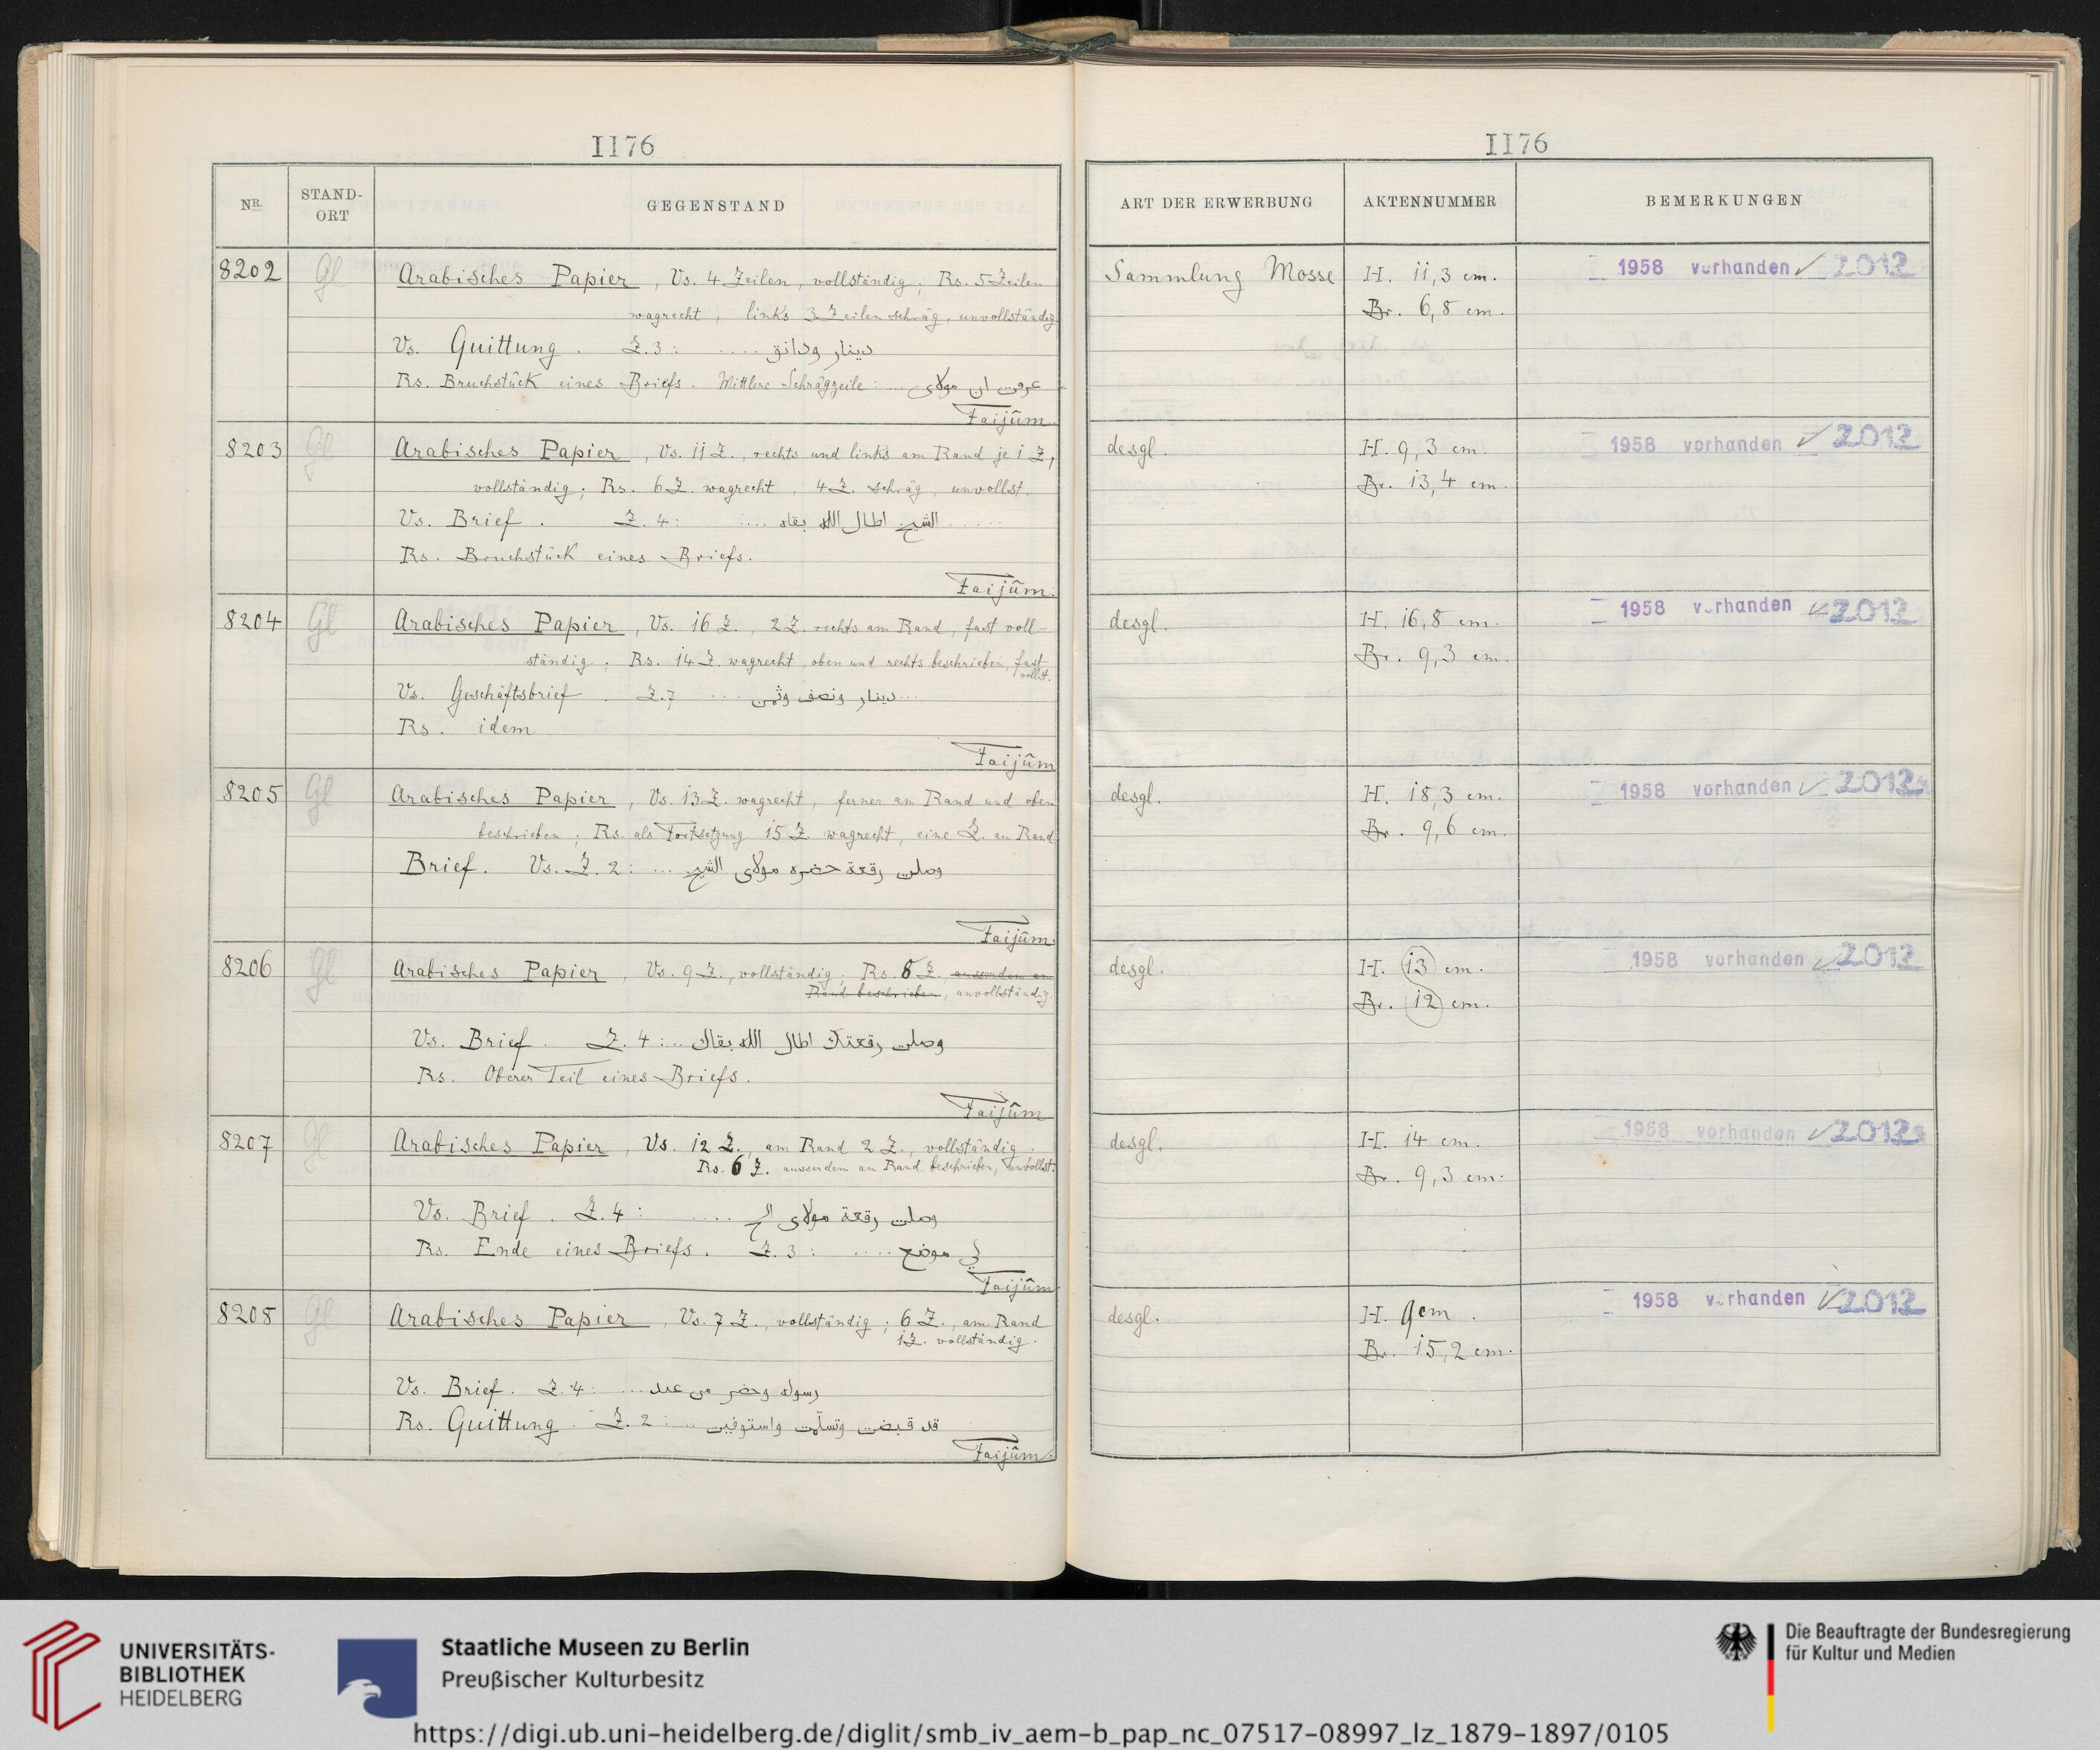 1176
NR.
STAND-
ORT
GEGENSTAND
8202
Gl
Arabisches Papier, Vs. 4 Zeilen, vollständig; Rs. 5 Zeilen
wagrecht, links 3 Zeilen schräg, unvollständig
Vs. Quittung. Z. 3: .... دينار ودانق
Rs. Bruchstück eines Briefs. Mittlere Schrägzeile: ... عرفت ان مولاى
Faijûm.
8203
Gl
Arabisches Papier, Vs. 11 Z., rechts und links am Rand je 1 Z,
vollständig; Rs. 6 Z. wagrecht, 4 Z. schräg, unvollst.
Vs. Brief. Z. 4: .... الشيخ اطال الله بقاه ......
Rs. Bruchstück eines Briefs.
Faijûm.
8204
Gl
Arabisches Papier, Vs. 16 Z., 2 Z. rechts am Rand, fast voll-
ständig. Rs. 14 Z. wagrecht, oben und rechts beschrieben, fast
vollst.
Vs. Geschäftsbrief. Z. 7 .... دينار ونصف وثمن ...
Rs. idem
Faijûm
8205
Gl
Arabisches Papier, Vs. 13 Z. wagrecht, ferner am Rand und oben
beschrieben; Rs. als Fortsetzung 15 Z. wagrecht, eine Z. am Rand
Brief. Vs. Z. 2: ... وصلت رقعة حضره مولاى الشيخ
Faijûm.
8206
Gl
Arabisches Papier, Vs. 9 Z., vollständig; Rs. 8 Z. ausserdem am
Rand beschrieben, unvollständig.
Vs. Brief. Z. 4: ... وصلت رقعتك اطال الله بقاك
Rs. Oberer Teil eines Briefs.
Faijûm
8207
Gl
Arabisches Papier, Vs. 12 Z., am Rand 2 Z., vollständig.
Rs. 6 Z. ausserdem am Rand beschrieben, unvollst.
Vs. Brief. Z. 4: .... وصلت رقعة مولاى الخ
Rs. Ende eines Briefs. Z. 3: .... في موضع
Faijûm.
8208
Gl
Arabisches Papier, Vs. 7 Z., vollständig; 6 Z., am Rand
1 Z. vollständig.
Vs. Brief. Z. 4: ... رسوله وحضر من عند
Rs. Quittung. Z. 2: ... قد قبضت وتسلّمت واستوفيت
Faijûm.
1176
ART DER ERWERBUNG
AKTENNUMMER
BEMERKUNGEN
Sammlung Mosse
H. 11,3 cm.
Br. 6,8 cm.
1958 vorhanden ✓ 2012
desgl.
H. 9,3 cm.
Br. 13,4 cm.
1958 vorhanden ✓ 2012
desgl.
H. 16,8 cm.
Br. 9,3 cm.
1958 vorhanden ✓ 2012
desgl.
H. 18,3 cm.
Br. 9,6 cm.
1958 vorhanden ✓ 2012
desgl.
H. 13 cm.
Br. 12 cm.
1958 vorhanden ✓ 2012
desgl.
H. 14 cm.
Br. 9,3 cm.
1958 vorhanden ✓ 2012
desgl.
H. 9cm.
Br. 15,2 cm.
1958 vorhanden ✓ 2012
UNIVERSITÄTS-
BIBLIOTHEK
HEIDELBERG
Staatliche Museen zu Berlin
Preußischer Kulturbesitz
Die Beauftragte der Bundesregierung
für Kultur und Medien
https://digi.ub.uni-heidelberg.de/diglit/smb_iv_aem-b_pap_nc_07517-08997_lz_1879-1897/0105